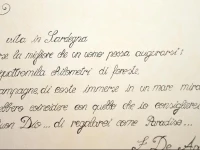 vita in Sardegna
se la migliore che un uomo possa augurarsi:
quattromila chilometri di foreste,
campagne, di coste immerse in un mare mira
ebbero coincidere con quello che io consiglierei
buon Dio... di regalarci come Paradiso...
F. De An